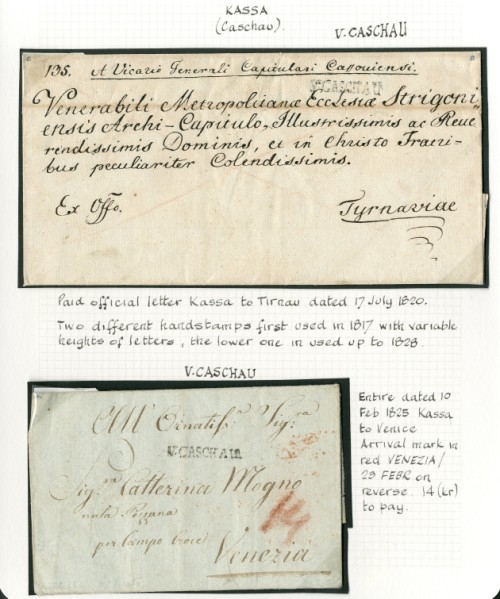 KASSA
(Caschau)
V. CASCHAU
195. A Vicario Generali Capitulari Cassoviensi.
V. CASCHAU
Venerabili Metropolitanæ Ecclesiæ Strigoni-
ensis Archi-Capitulo, Illustrissimis ac Reve
rendissimis Dominis, et in Christo Fratri-
bus peculiariter Colendissimis.
Ex Offo.
Tyrnaviae
Paid official letter Kassa to Tirnau dated 17 July 1820.
Two different handstamps first used in 1817 with variable
heights of letters, the lower one in used up to 1828.
V. CASCHAU
All' Ornatis.ma Sig.ra
V. CASCHAU
Sig.ra Catterina Mogno
nata
per Campo
Venezia
14
Entire dated 10
Feb 1825 Kassa
to Venice
Arrival mark in
red VENEZIA/
29 FEBR on
reverse. 14 (kr)
to pay.